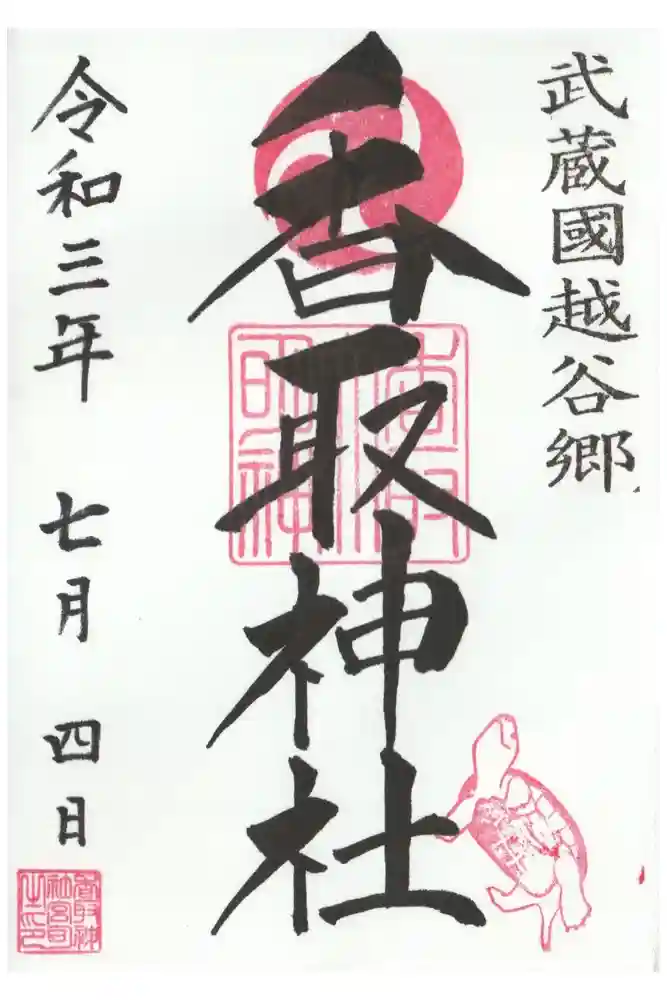 武蔵國越谷郷
香取神社
令和三年 七月 四日